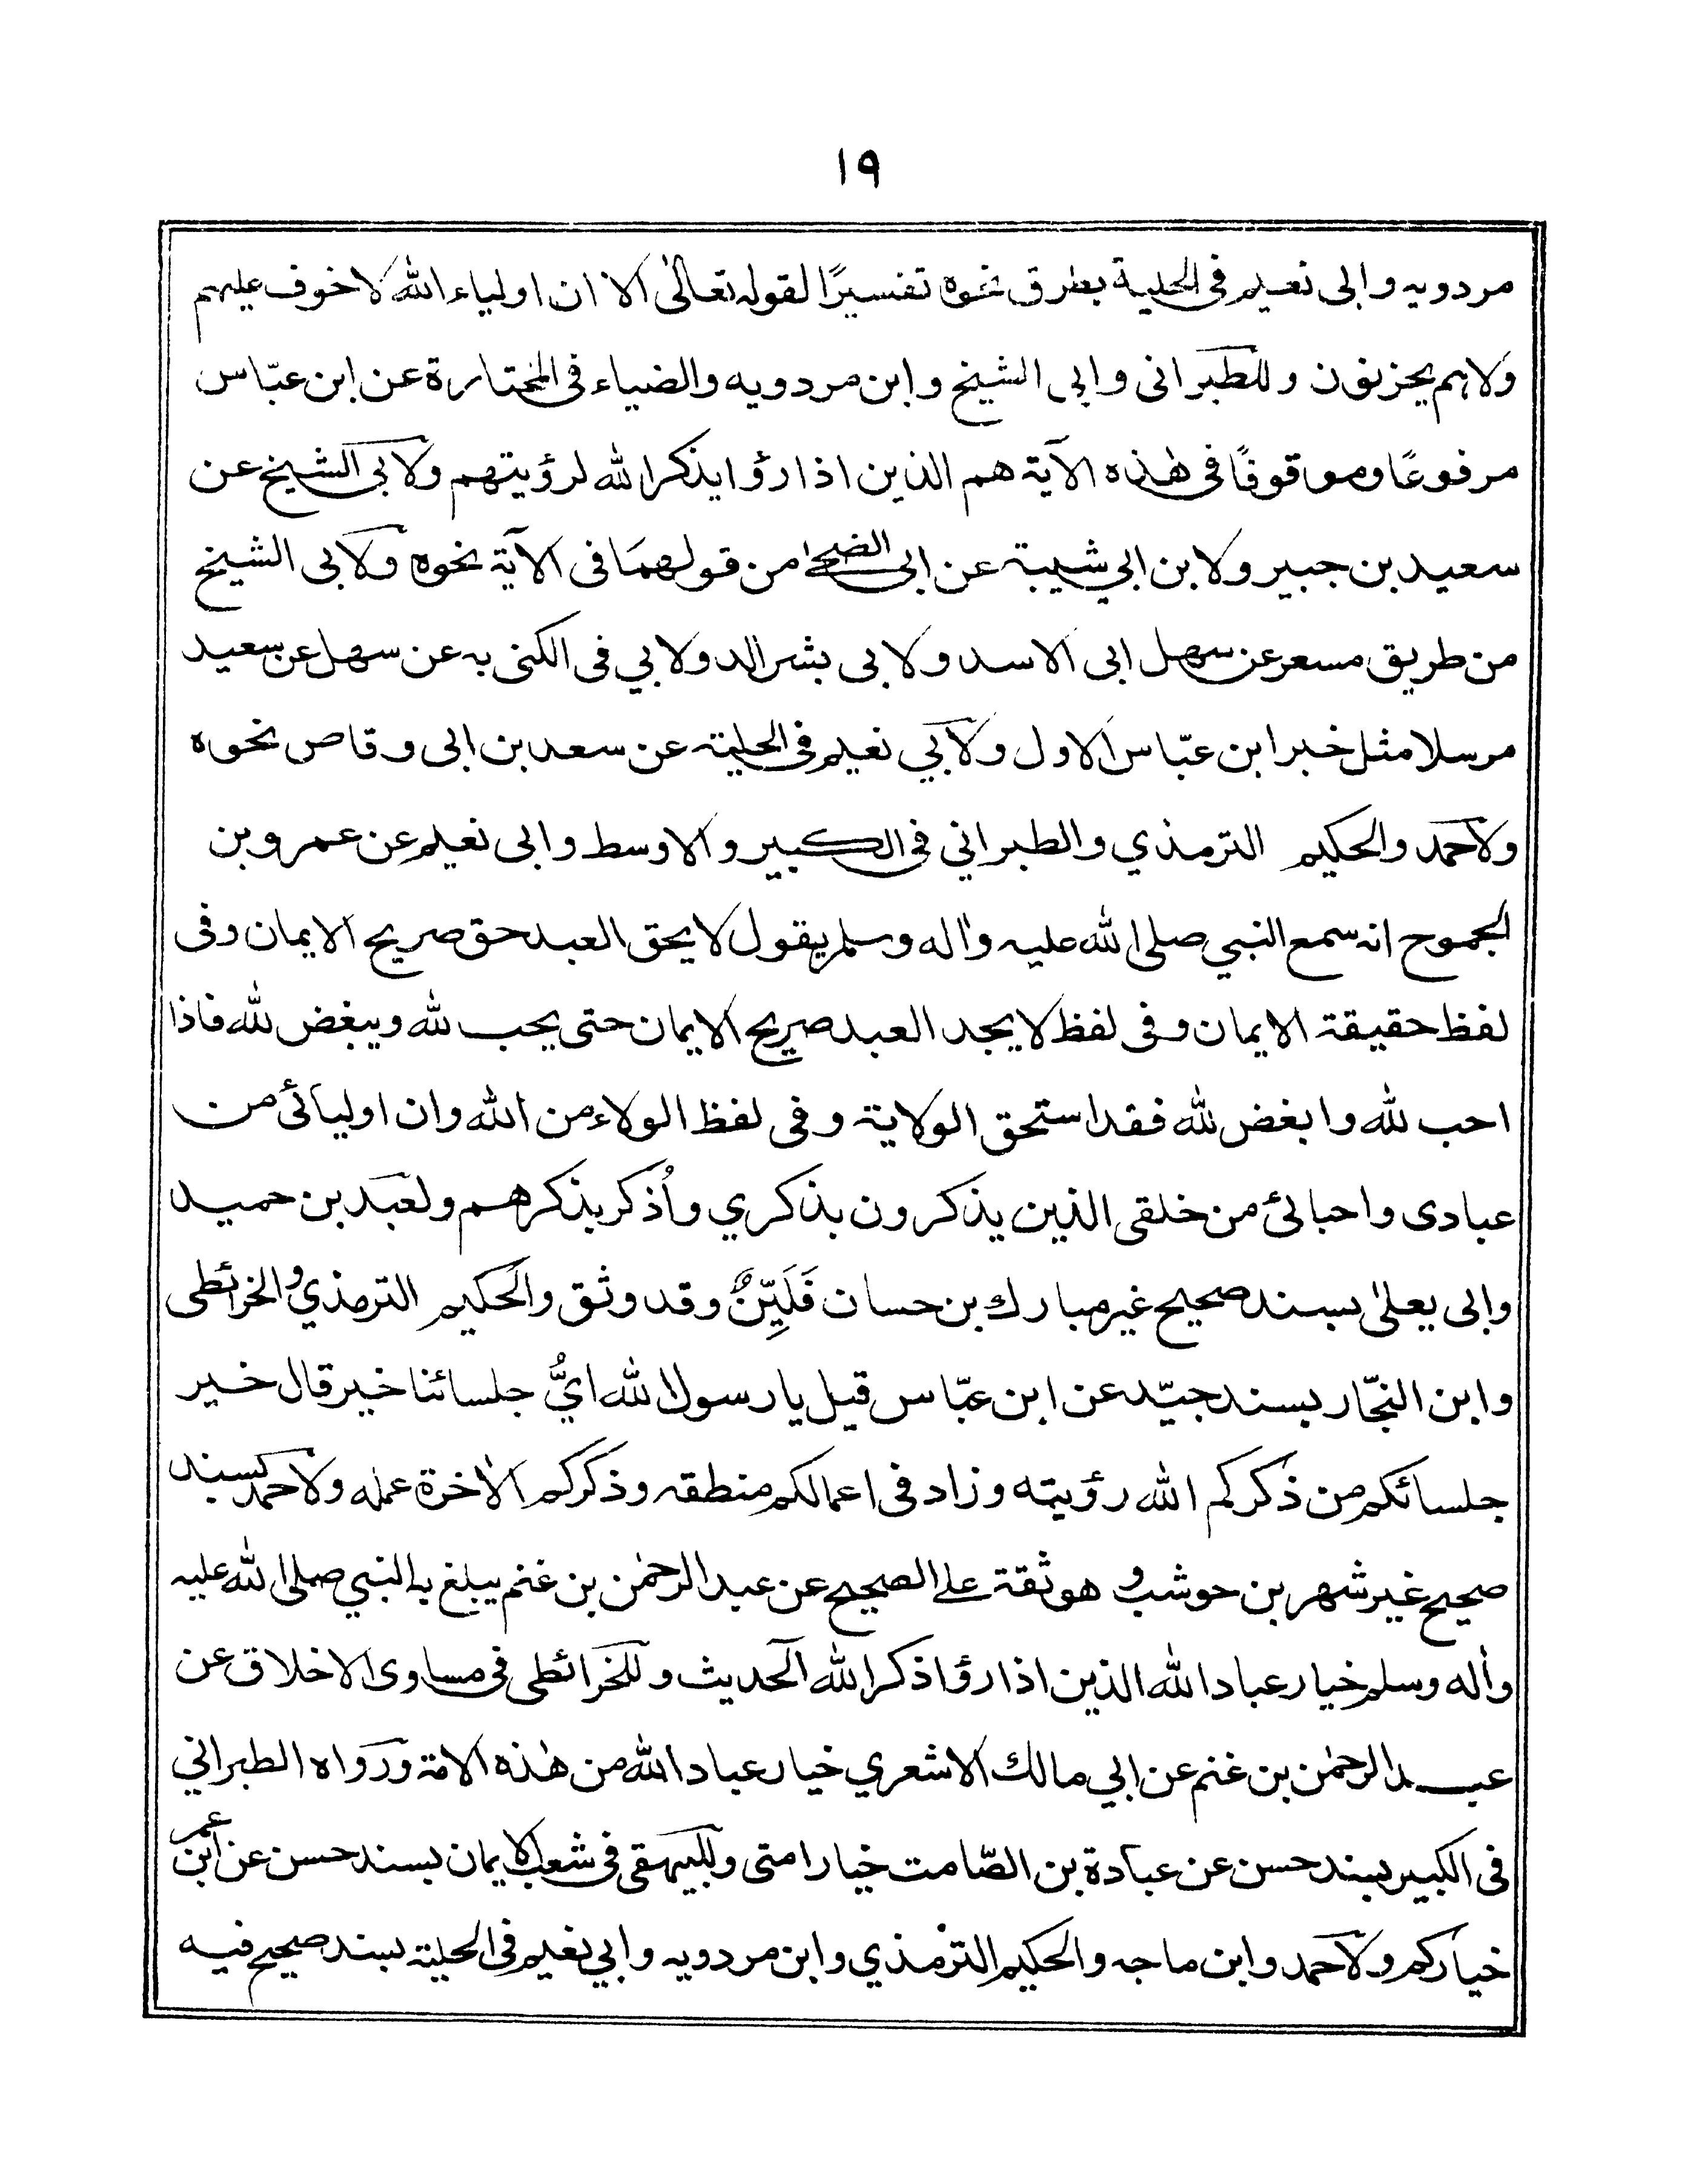 ١٩
مردويه وابى نعيم فى الحلية بطرق نحوه تفسيرًا لقوله تعالىٰ الا ان اولياء الله لا خوف عليهم
ولا هم يحزنون وللطبرانى وابى الشيخ وابن مردويه والضياء فى المختارة عن ابن عبّاس
مرفوعًا وموقوفًا فى هٰذه الآية هم الذين اذا رؤا يذكر الله لرؤيتهم ولابى الشيخ عن
سعيد بن جبير ولابن ابي شيبة عن ابى الضحىٰ من قولهمَا فى الآية نحوه ولابى الشيخ
من طريق مسعر عن سهل ابى الاسد ولابى بشر الدولابي فى الكنى به عن سهل عن سعيد
مرسلا مثل خبر ابن عبّاس الاول ولابي نعيم فى الحلية عن سعد بن ابى وقاص نحوه
ولاحمد والحكيم الترمذي والطبراني فى الكبير والاوسط وابى نعيم عن عمرو بن
الجموح انه سمع النبي صلى الله عليه واٰله وسلم يقول لا يحق العبد حق صريح الايمان وفى
لفظ حقيقة الايمان وفى لفظ لا يجد العبد صريح الايمان حتى يحب لله ويبغض لله فاذا
احب لله وابغض لله فقد استحق الولاية وفى لفظ الولاء من الله وان اوليائى من
عبادى واحبائى من خلقى الذين يذكرون بذكري واُذكر بذكرهم ولعبد بن حميد
وابى يعلىٰ بسند صحيح غير مبارك بن حسان فَلَيِّنٌ وقد وثق والحكيم الترمذي والخرائطى
وابن النجّار بسند جيّد عن ابن عبّاس قيل يا رسول الله ايُّ جلسائنا خير قال خير
جلسائكم من ذكركم الله رؤيته وزاد فى اعمالكم منطقه وذكركم الاٰخرة عمله ولاحمد بسند
صحيح غير شهر بن حوشب و هو ثقة على الصحيح عن عبد الرحمٰن بن غنم يبلغ به النبي صلى الله عليه
واٰله وسلم خيار عباد الله الذين اذا رؤا ذكر الله الحديث وللخرائطى فى مساوى الاخلاق عن
عبد الرحمٰن بن غنم عن ابي مالك الاشعري خيار عباد الله من هٰذه الامة ورواه الطبراني
فى الكبير بسند حسن عن عبادة بن الصّامت خيار امتى وللبيهقى فى شعب الايمان بسند حسن عن ابن عمر
خياركم ولاحمد وابن ماجه والحكيم الترمذي وابن مردويه وابي نعيم فى الحلية بسند صحيح فيه